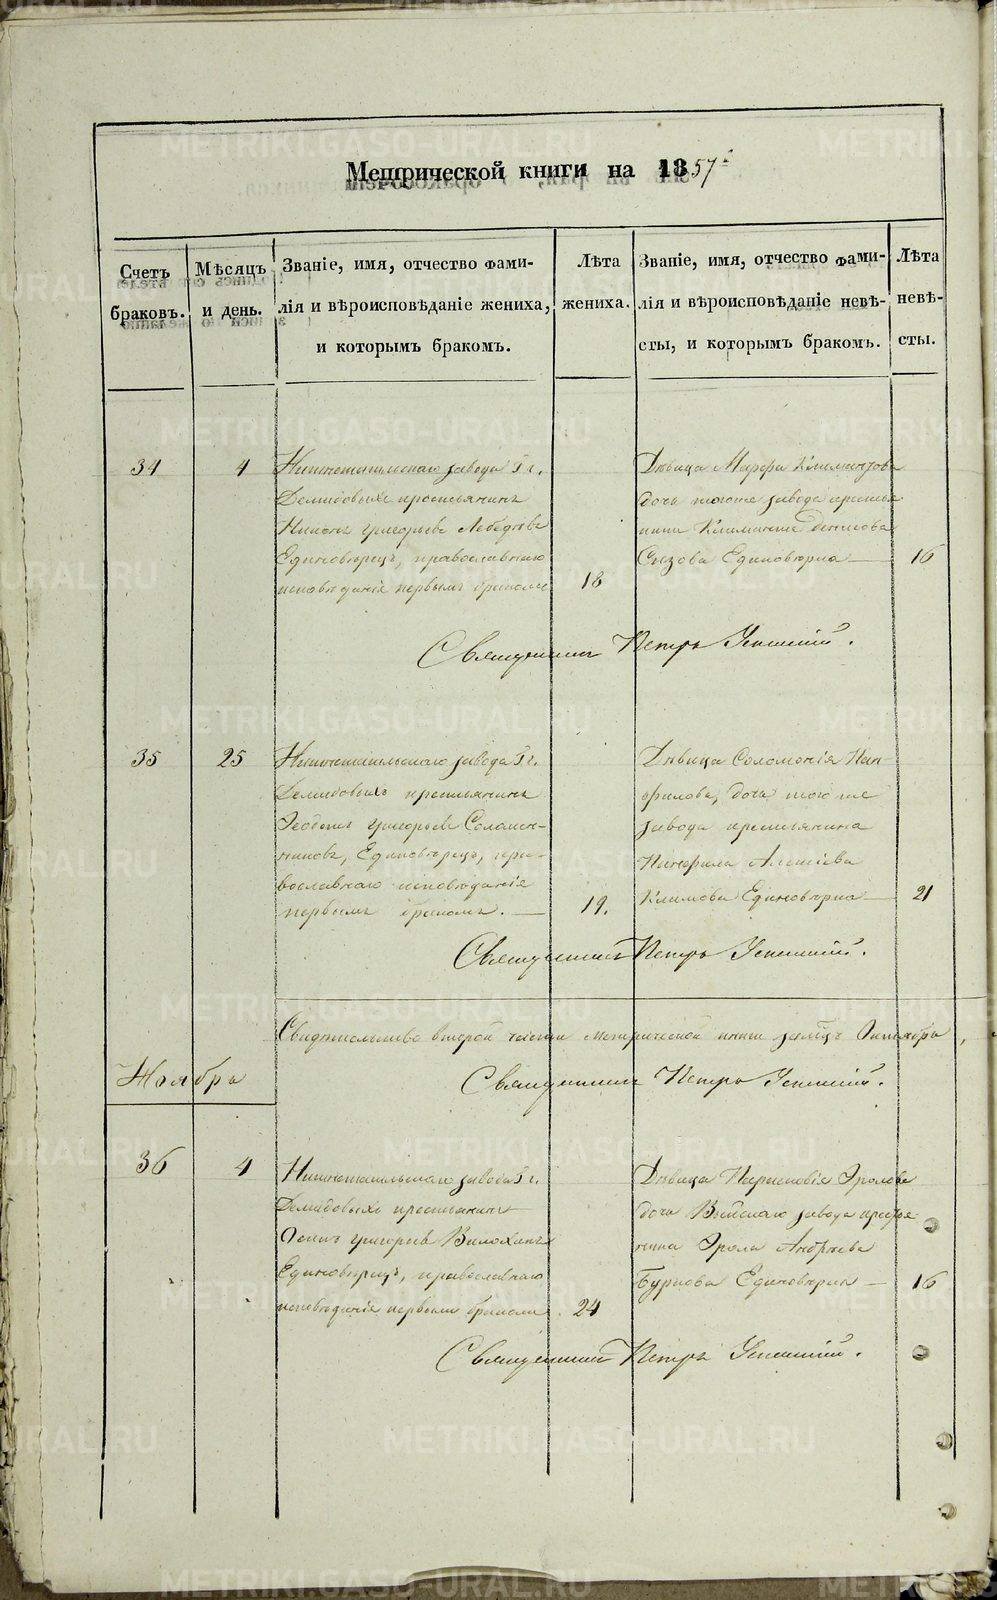 Метрической книги на 1857й
Счетъ браковъ.
Мѣсяцъ и день.
Званіе, имя, отчество фами-
лія и вѣроисповѣданіе жениха,
и которымъ бракомъ.
Лѣта жениха.
Званіе, имя, отчество фами-
лія и вѣроисповѣданіе невѣ-
сты, и которымъ бракомъ.
Лѣта невѣ-
сты.
34
4
Нижнетагильскаго завода Гг.
Демидовыхъ крестьянинъ
Никонъ Григорьевъ Лебедевъ
Единовѣрецъ, православнаго
исповѣданія первымъ бракомъ
18
Дѣвица Марфа Климентова
дочь тогоже завода крестья
нина Климента Денисова
Сызова Единовѣрка
16
Священникъ Петръ Успенскій.
35
25
Нижнетагильскаго завода Гг.
Демидовыхъ крестьянинъ
Федотъ Григорьевъ Соломен-
никовъ, Единовѣрецъ, пра-
вославнаго исповѣданія
первымъ бракомъ.
19.
Дѣвица Соломонія Пан-
филова, дочь того же
завода крестьянина
Панфила Алексіева
Климова Единовѣрка
21
Священникъ Петръ Успенскій.
Свидѣтельство второй части метрической книги за мѣсяцъ Октябрь,
Священникъ Петръ Успенскій.
Ноябрь
36
4
Нижнетагильскаго завода Гг.
Демидовыхъ крестьянинъ
Осипъ Григорьевъ Вилохинъ
Единовѣрецъ, православнаго
исповѣданія первымъ бракомъ
24
Дѣвица Парасковія Фролова
дочь Выйскаго завода крестья
нина Фрола Андреева
Буркова Единовѣрка
16
Священникъ Петръ Успенскій.
METRIKI.GASO-URAL.RU